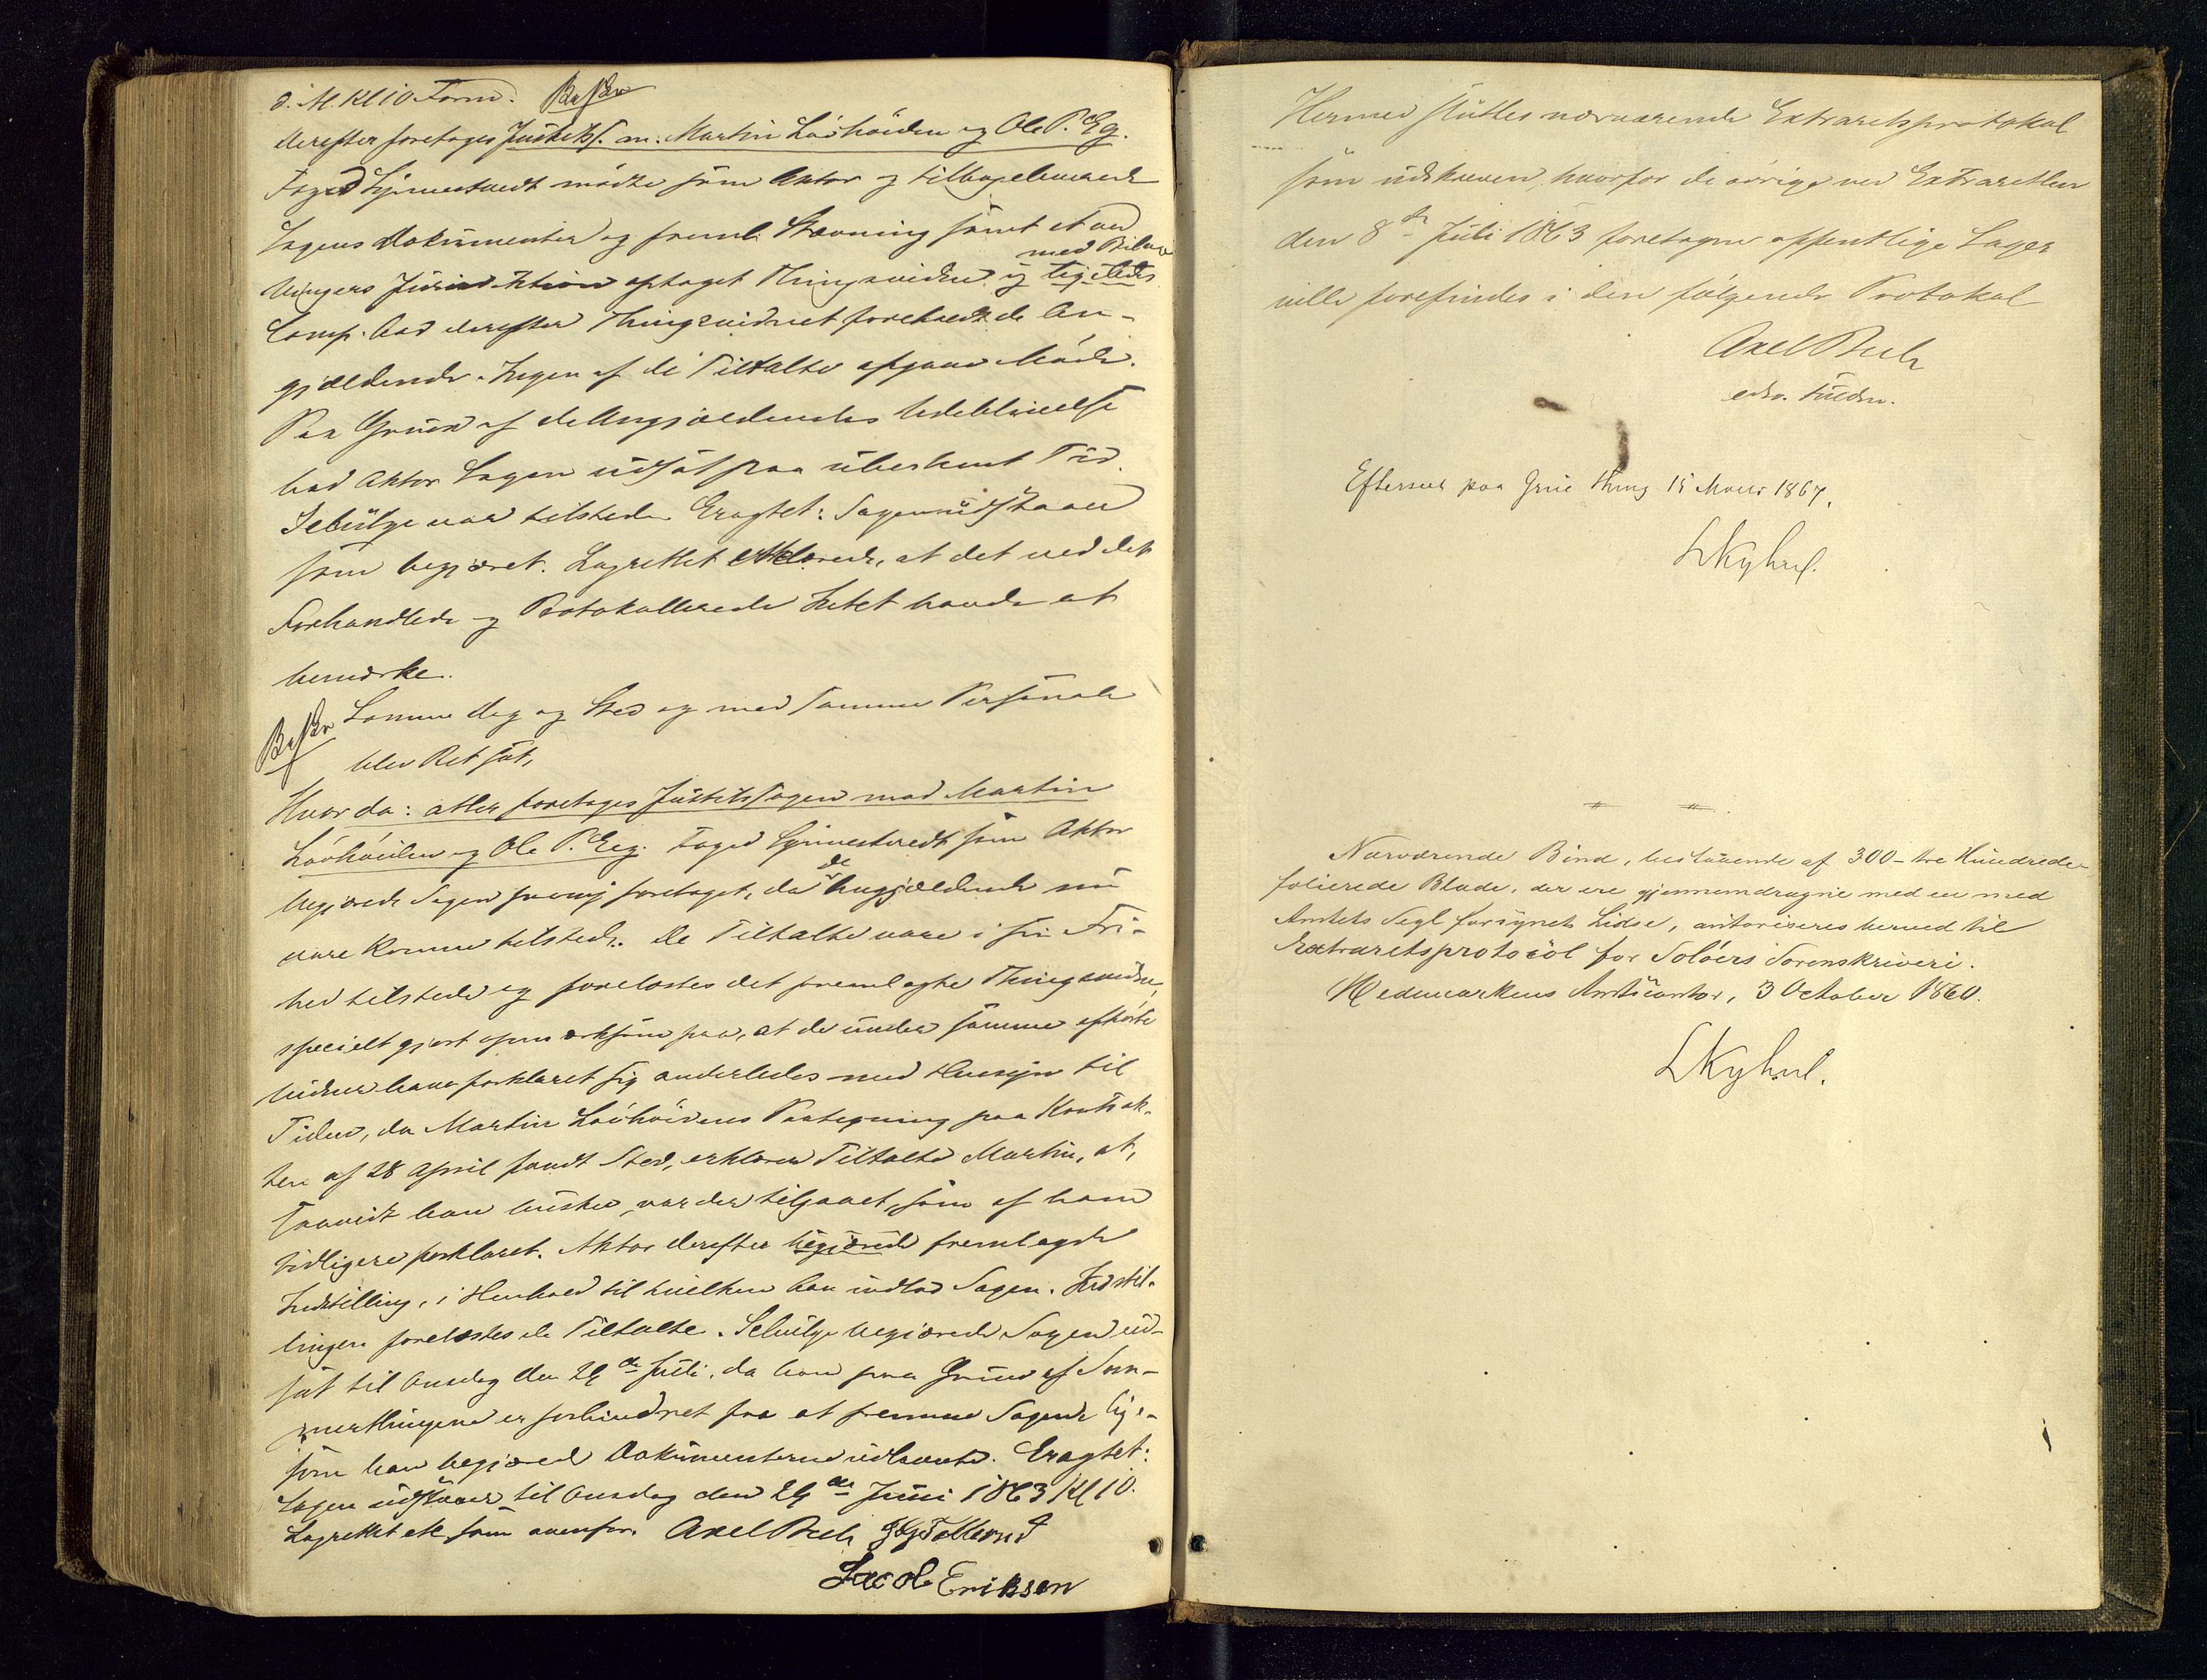 d. M. Kl 10 Form. Beskr
derefter foretoges Justitss. m. Martin Løvhöiden og Ole P. Eg.
Foged Gjmestvedt mödte som Aktor og tilbageleverede
Sagens Dokumenter og freml. Stævning samt et ved
med Bilage
Vingers Jurisdiktion optaget Thingsvidne og ligeledes
Comp. bad derefter Thingsvidnet foreholdt de An-
gjældende. Ingen af de Tiltalte afgave Möde.
Paa Grund af de Angjældendes Udeblivelse
bad Aktor Sagen udsat paa ubestemt Tid.
Sebülge var tilstede. Eragtet: Sagen udstaaer
som begjæret. Lagrettet erklærede, at det ved det
Forhandlede og Protokollerede Intet havde at
bemærke.
Beskr Samme Dag og Sted og med samme Personale
blev Ret sat,
Hvor da: atter foretoges Justitssagen mod Martin
Lövhöiden og Ole P. Eeg. Foged Gjmestvedt som Aktor
begjærede Sagen paany foretaget, da de Angjældende nu
vare komne tilstede. De Tiltalte vare i sin Fri-
hed tilstede og forelæstes det fremlagte Thingsvidne,
specielt gjort opmærksom paa, at de under samme afhørte
Vidner have forklaret sig anderledes med Hensyn til
Tiden, da Martin Lövhöidens Paategning paa Kontrak-
ten af 28 April fandt Sted, erklærer Tiltalte Martin, at,
saavidt han husker, var det tilgaaet, som af ham
tidligere forklaret. Aktor derefter begjærede fremlagde
Indstilling, i Henhold til hvilken han indlod Sagen. Indstil-
lingen forelæstes de Tiltalte. Sebülge begjærede Sagen ud-
sat til Onsdag den 29de Juli, da han paa Grund af Som-
merthingene er forhindret fra at fremme Sagen lige-
som han begjæred Dokumenterne udlaante. Eragtet:
Sagen udstaaer til Onsdag den 29de Juni 1863 Kl 10.
Lagrettet etc som ovenfor. Axel Bech
Jacob Eriksen
Hermed sluttes nærværende Extraretsprotokol
som udskreven, hvorfor de øvrige ved Extraretten
den 8de Juli 1863 foretagne offentlige Sager
ville forefindes i den følgende Protokol
Axel Bech
edsv. Fuldm.
Efterseet paa Grue Thing 15 Marts 1867.
LKyhul.
Nærværende Bind, bestaaende af 300 - tre Hundrede -
folierede Blade, der ere gjennemdragne med en med
Amtets Segl forsynet Lidse, autoriseres herved til
Extraretsprotocol for Solöers Sorenskriveri.
Hedemarkens Amtscontor, 3 October 1860.
LKyhul.